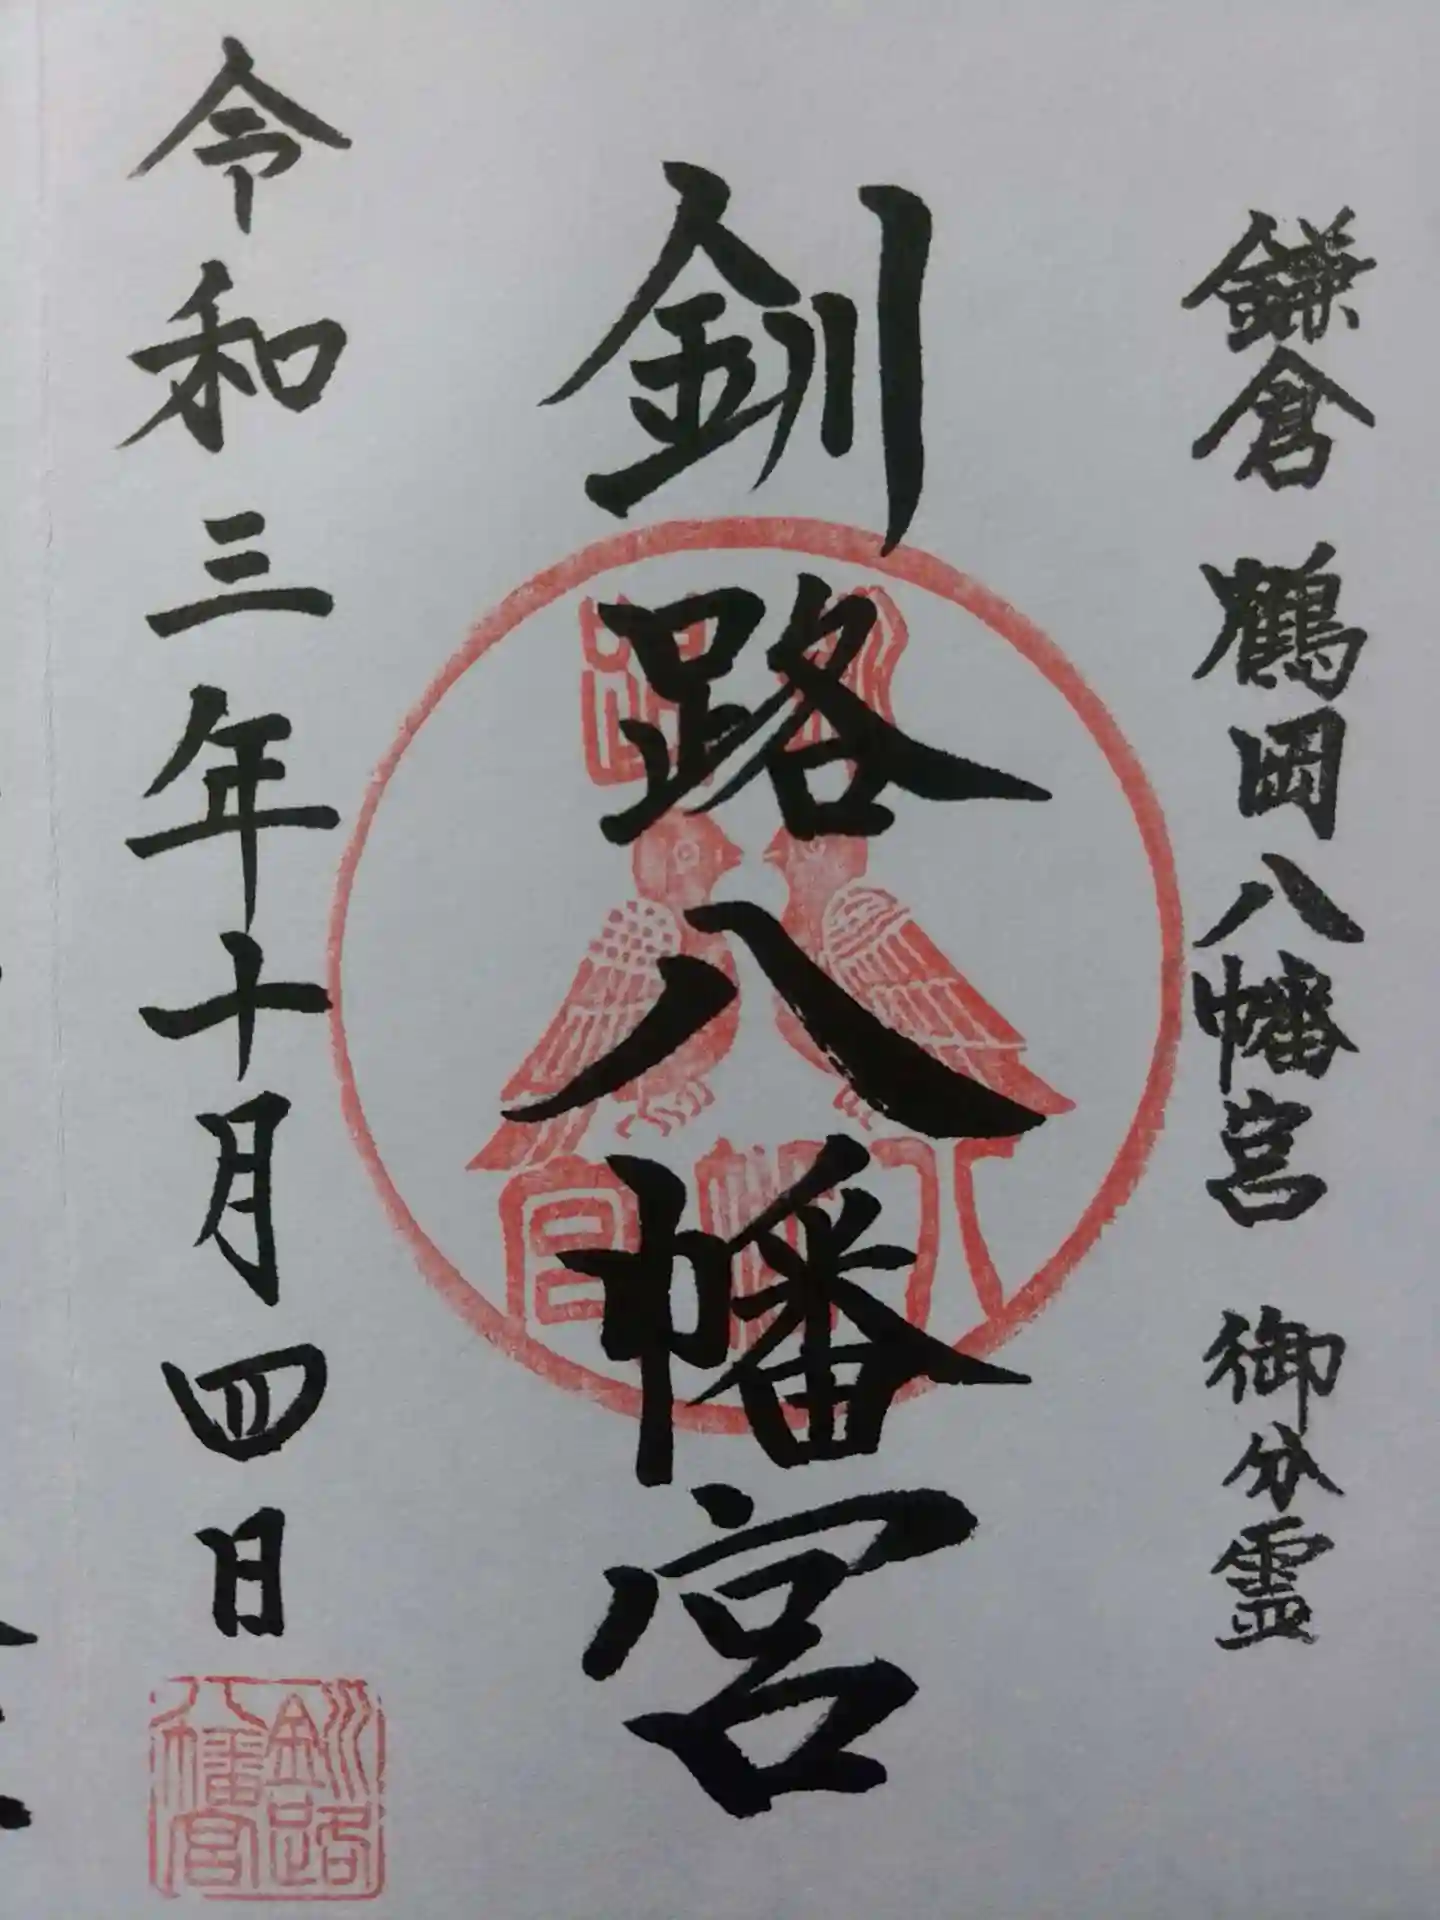 鎌倉 鶴岡八幡宮 御分霊
釧路八幡宮
令和三年十月四日
釧路
八幡宮
釧路
八幡宮